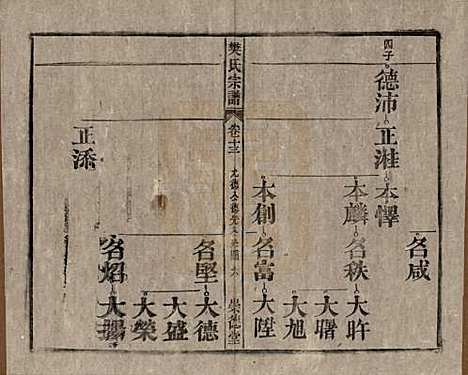 四子
德沛 正溎 本懌
名咸
本麟 名秩 大昕
大曙
大旭
本創 名富 大陞
樊氏宗譜
卷十三
崇德堂
名堅 大德
大盛
大榮
正添
名焰 大